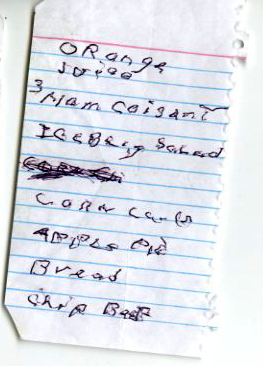 ORange
Juice
3 Ham
IceBerg Salad
CORN
APPLE Pie
Bread
chip Beef